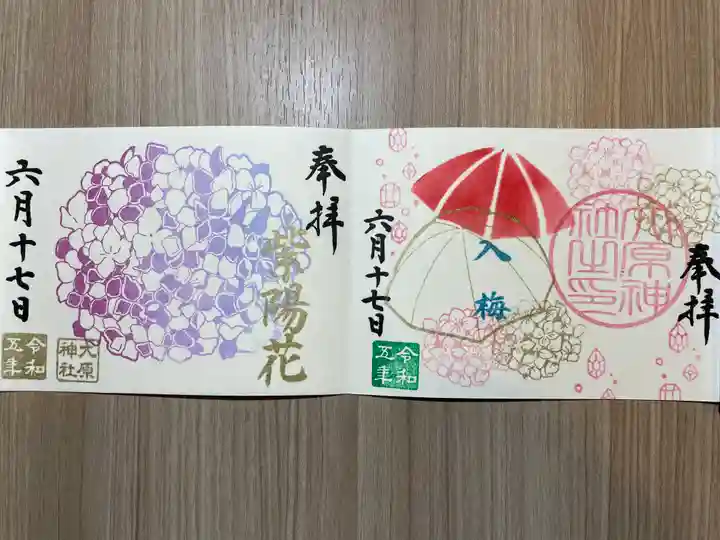 奉拝
入梅
六月十七日
大原神社之印
令和五年
奉拝
紫陽花
六月十七日
大原神社
令和五年